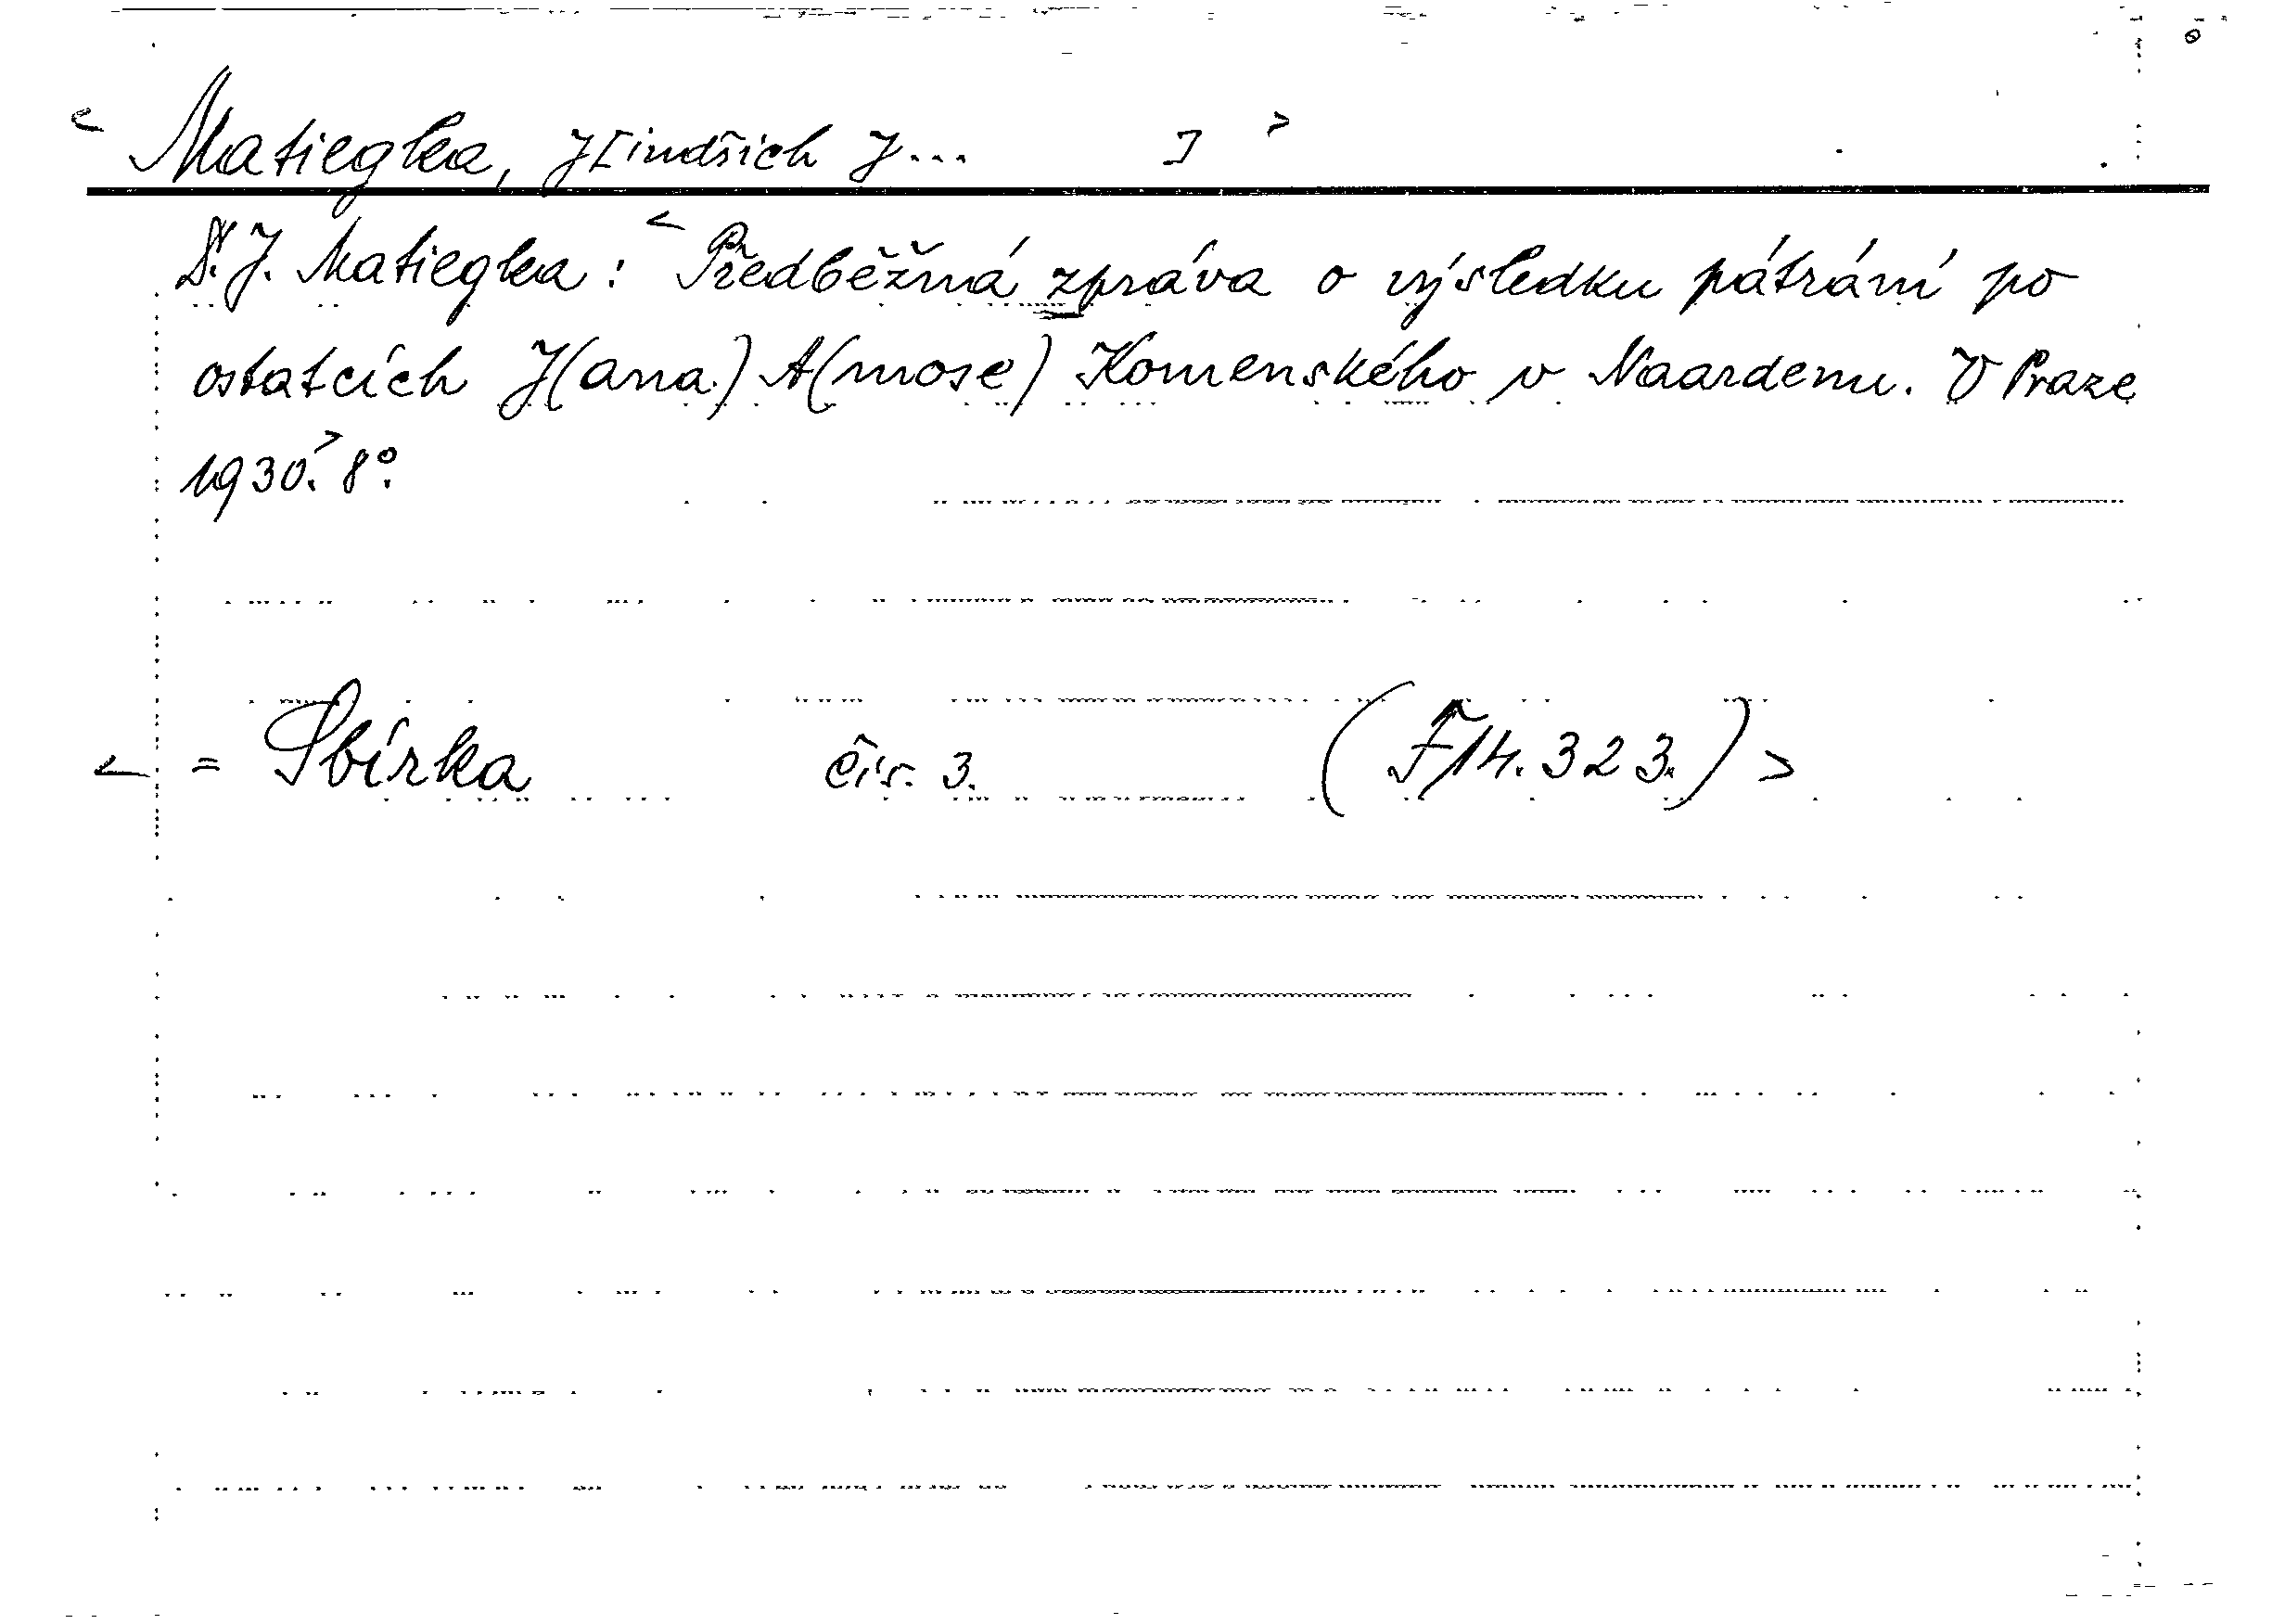 < Matiegka, J[indřich J... ] >
D.r J. Matiegka: < Předběžná zpráva o výsledku pátrání po
ostatcích J(ana) A(mose) Komenského v Naardenu. V Praze
1930. > 8°.
< = Sbírka čís. 3. (F 14.323.) >